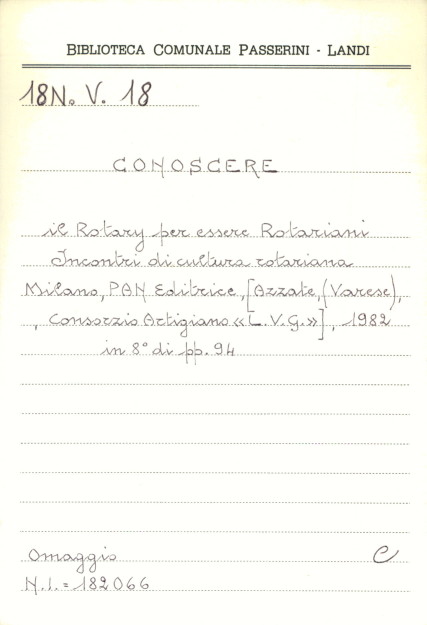 BIBLIOTECA COMUNALE PASSERINI - LANDI
18N. V. 18
CONOSCERE
il Rotary per essere Rotariani
Incontri di cultura rotariana
Milano, PAN Editrice, [Azzate, (Varese),
, Consorzio Artigiano «L.V.G.»], 1982
in 8° di pp. 94
Omaggio C
N.I. = 182066